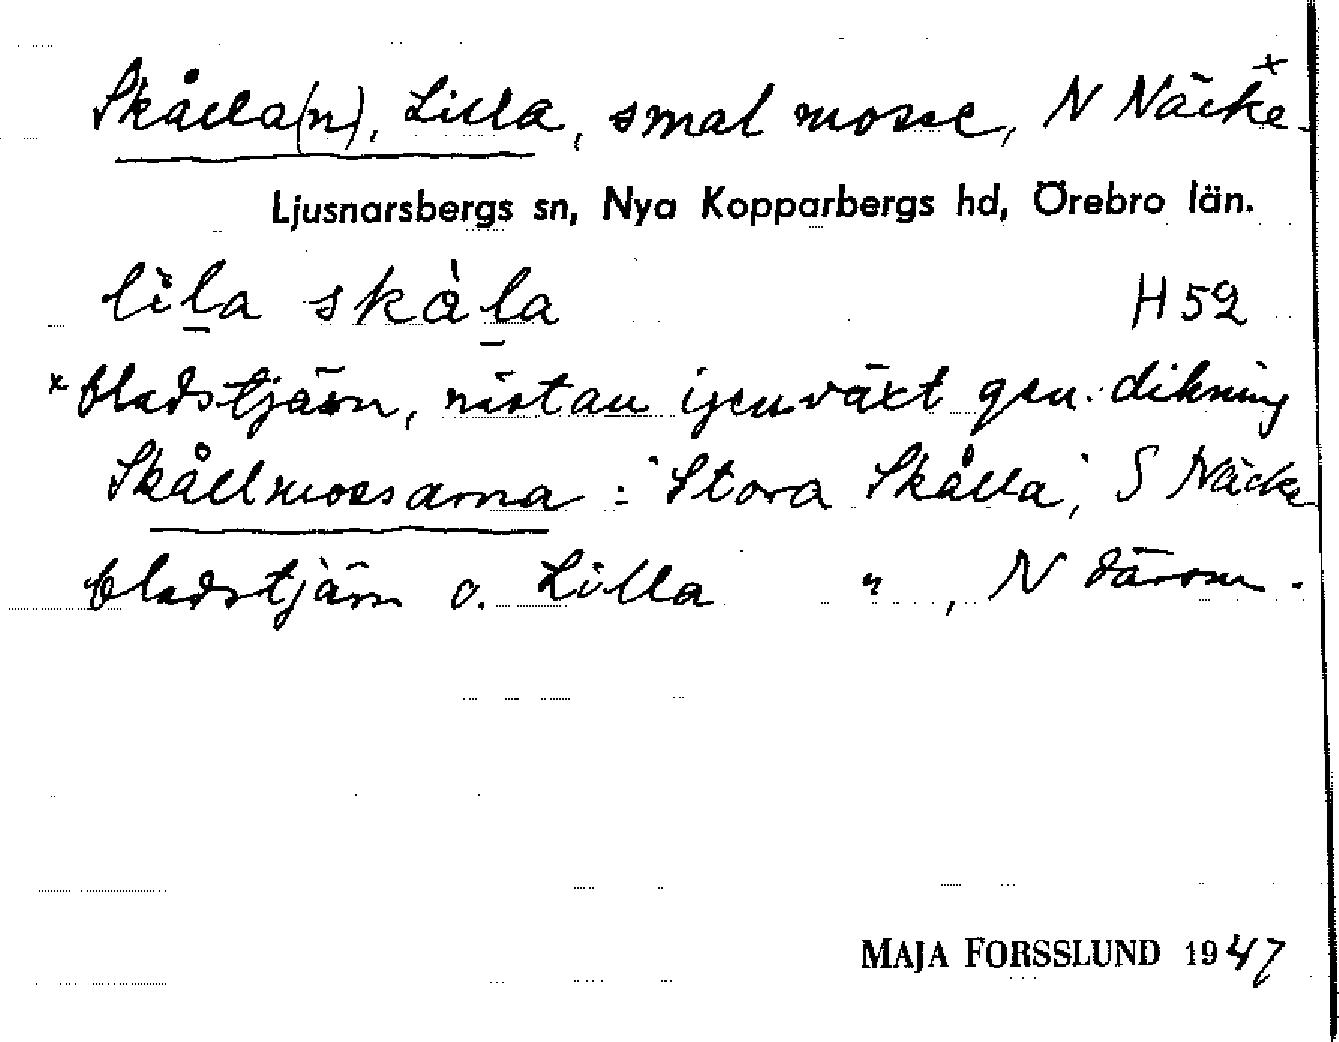 Skålla(n), Lilla, smal mosse, N Näcke-x
Ljusnarsbergs sn, Nya Kopparbergs hd, Örebro län.
lìla skàla H52
x bladstjärn, nästan igenväxt gm. dikning
Skållmossarna: "Stora Skålla", S Näcke
bladstjärn o. Lilla ", N därom.
MAJA FORSSLUND 1947